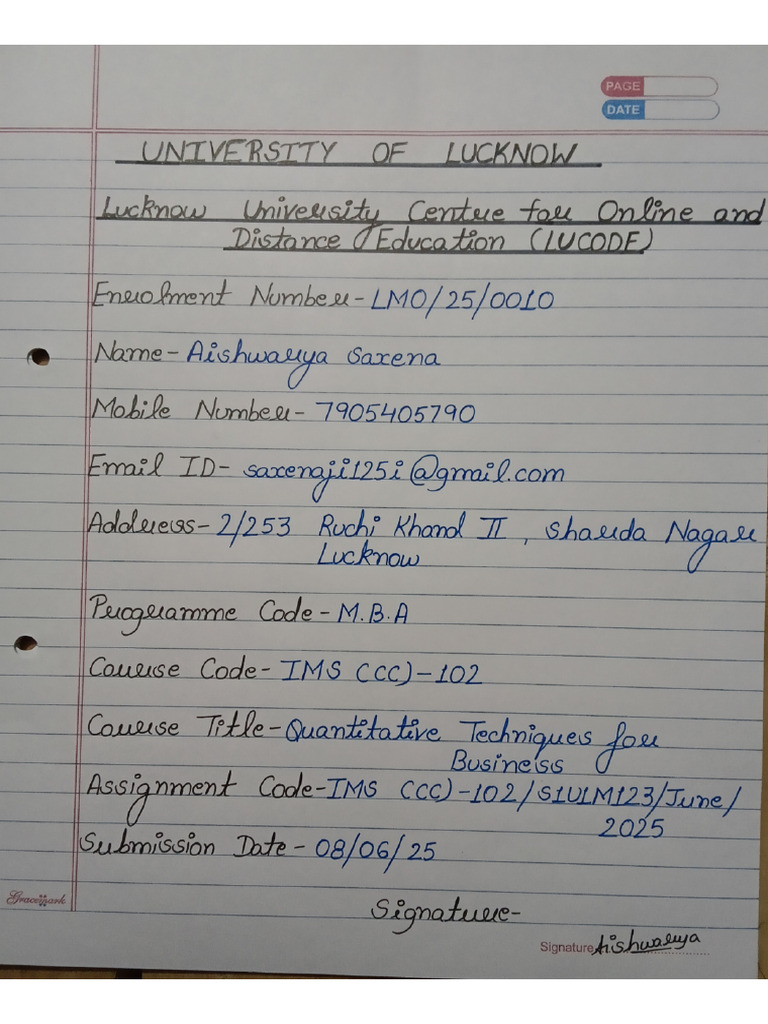 PAGE
DATE
UNIVERSITY OF LUCKNOW
Lucknow University Centre for Online and
Distance Education (LUCODE)
Enrolment Number- LMO/25/0010
Name- Aishwarya Saxena
Mobile Number- 7905405790
Email ID- saxenaji125i@gmail.com
Address- 2/253 Ruchi Khand II, Sharda Nagar
Lucknow
Programme Code- M.B.A
Course Code- IMS (CC)-102
Course Title- Quantitative Techniques for
Business
Assignment Code- IMS (CC)-102/S1U1M123/June/
2025
Submission Date- 08/06/25
Gracemark
Signature-
Signature Aishwarya